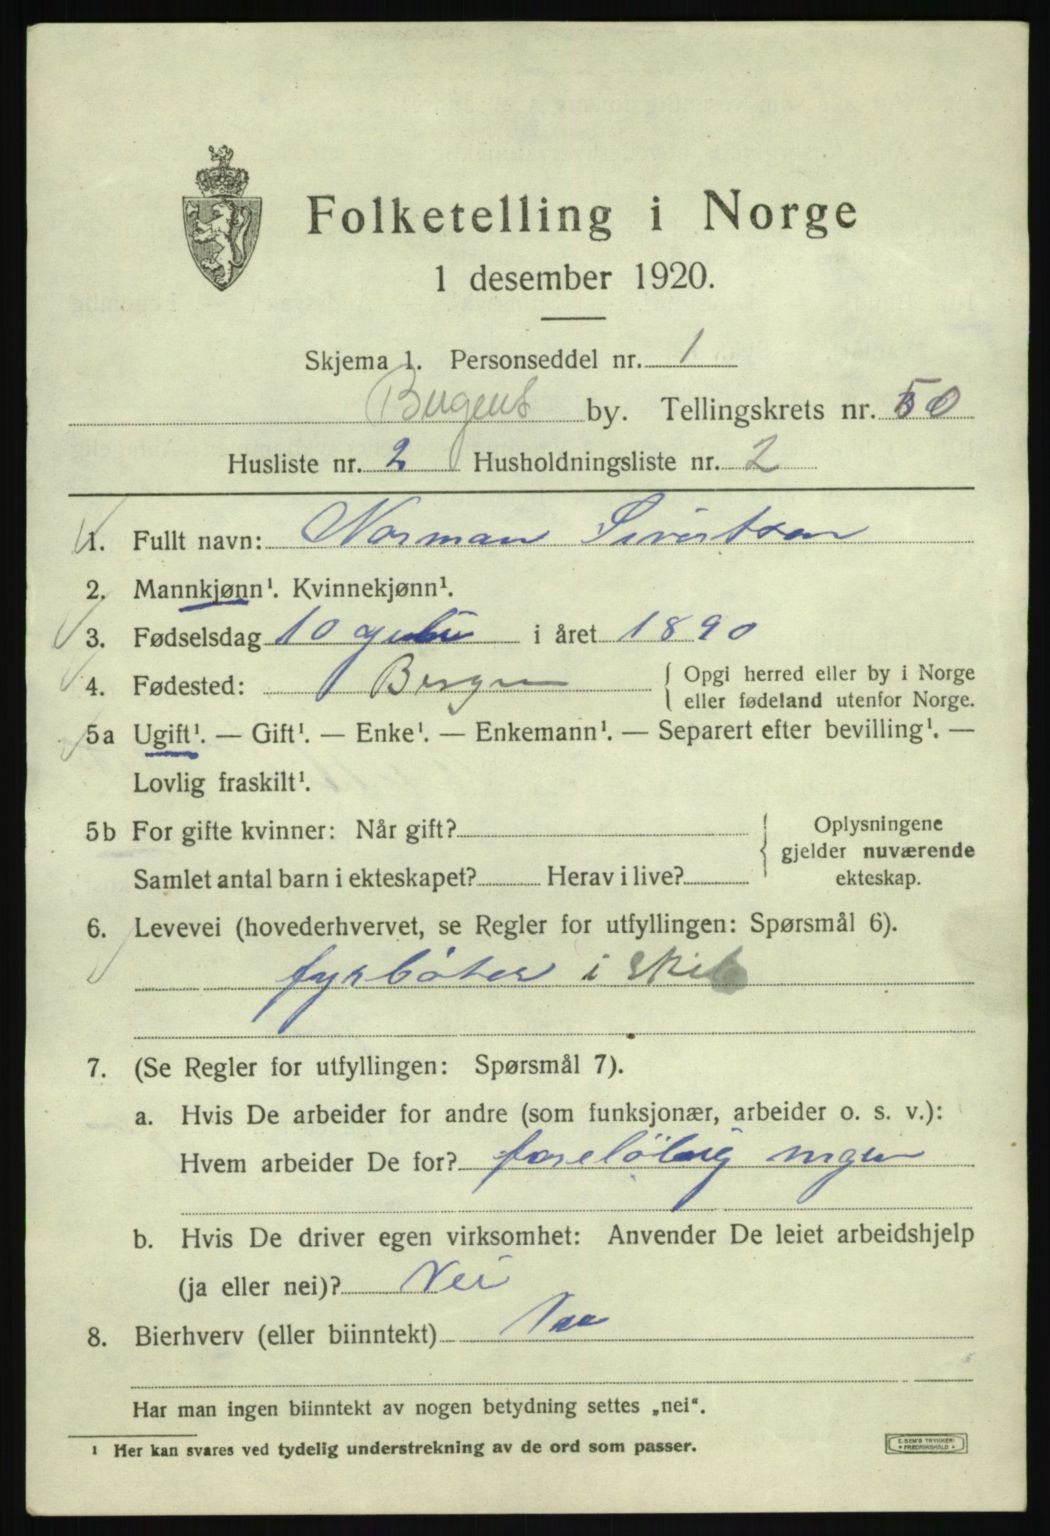 Folketelling i Norge
1 desember 1920.
Skjema 1. Personseddel nr. 1
Bergens by. Tellingskrets nr. 50
Husliste nr. 2 Husholdningsliste nr. 2
1. Fullt navn: Norman Sivertsen
2. Mannkjønn¹. Kvinnekjønn¹.
3. Fødselsdag 10 i året 1890
4. Fødested: Bergen { Opgi herred eller by i Norge
eller fødeland utenfor Norge.
5a Ugift¹. — Gift¹. — Enke¹. — Enkemann¹. — Separert efter bevilling¹. —
Lovlig fraskilt¹.
5b For gifte kvinner: Når gift? { Oplysningene
gjelder nuværende
Samlet antal barn i ekteskapet? Herav i live? ekteskap.
6. Levevei (hovederhvervet, se Regler for utfyllingen: Spørsmål 6).
fyrbøter i skib
7. (Se Regler for utfyllingen: Spørsmål 7).
a. Hvis De arbeider for andre (som funksjonær, arbeider o. s. v.):
Hvem arbeider De for? foreløbig ingen
b. Hvis De driver egen virksomhet: Anvender De leiet arbeidshjelp
(ja eller nei)? Nei
8. Bierhverv (eller biinntekt)
Har man ingen biinntekt av nogen betydning settes „nei“.
¹ Her kan svares ved tydelig understrekning av de ord som passer.
E. SEM'S TRYKKERI
• FREDRIKSHALD •